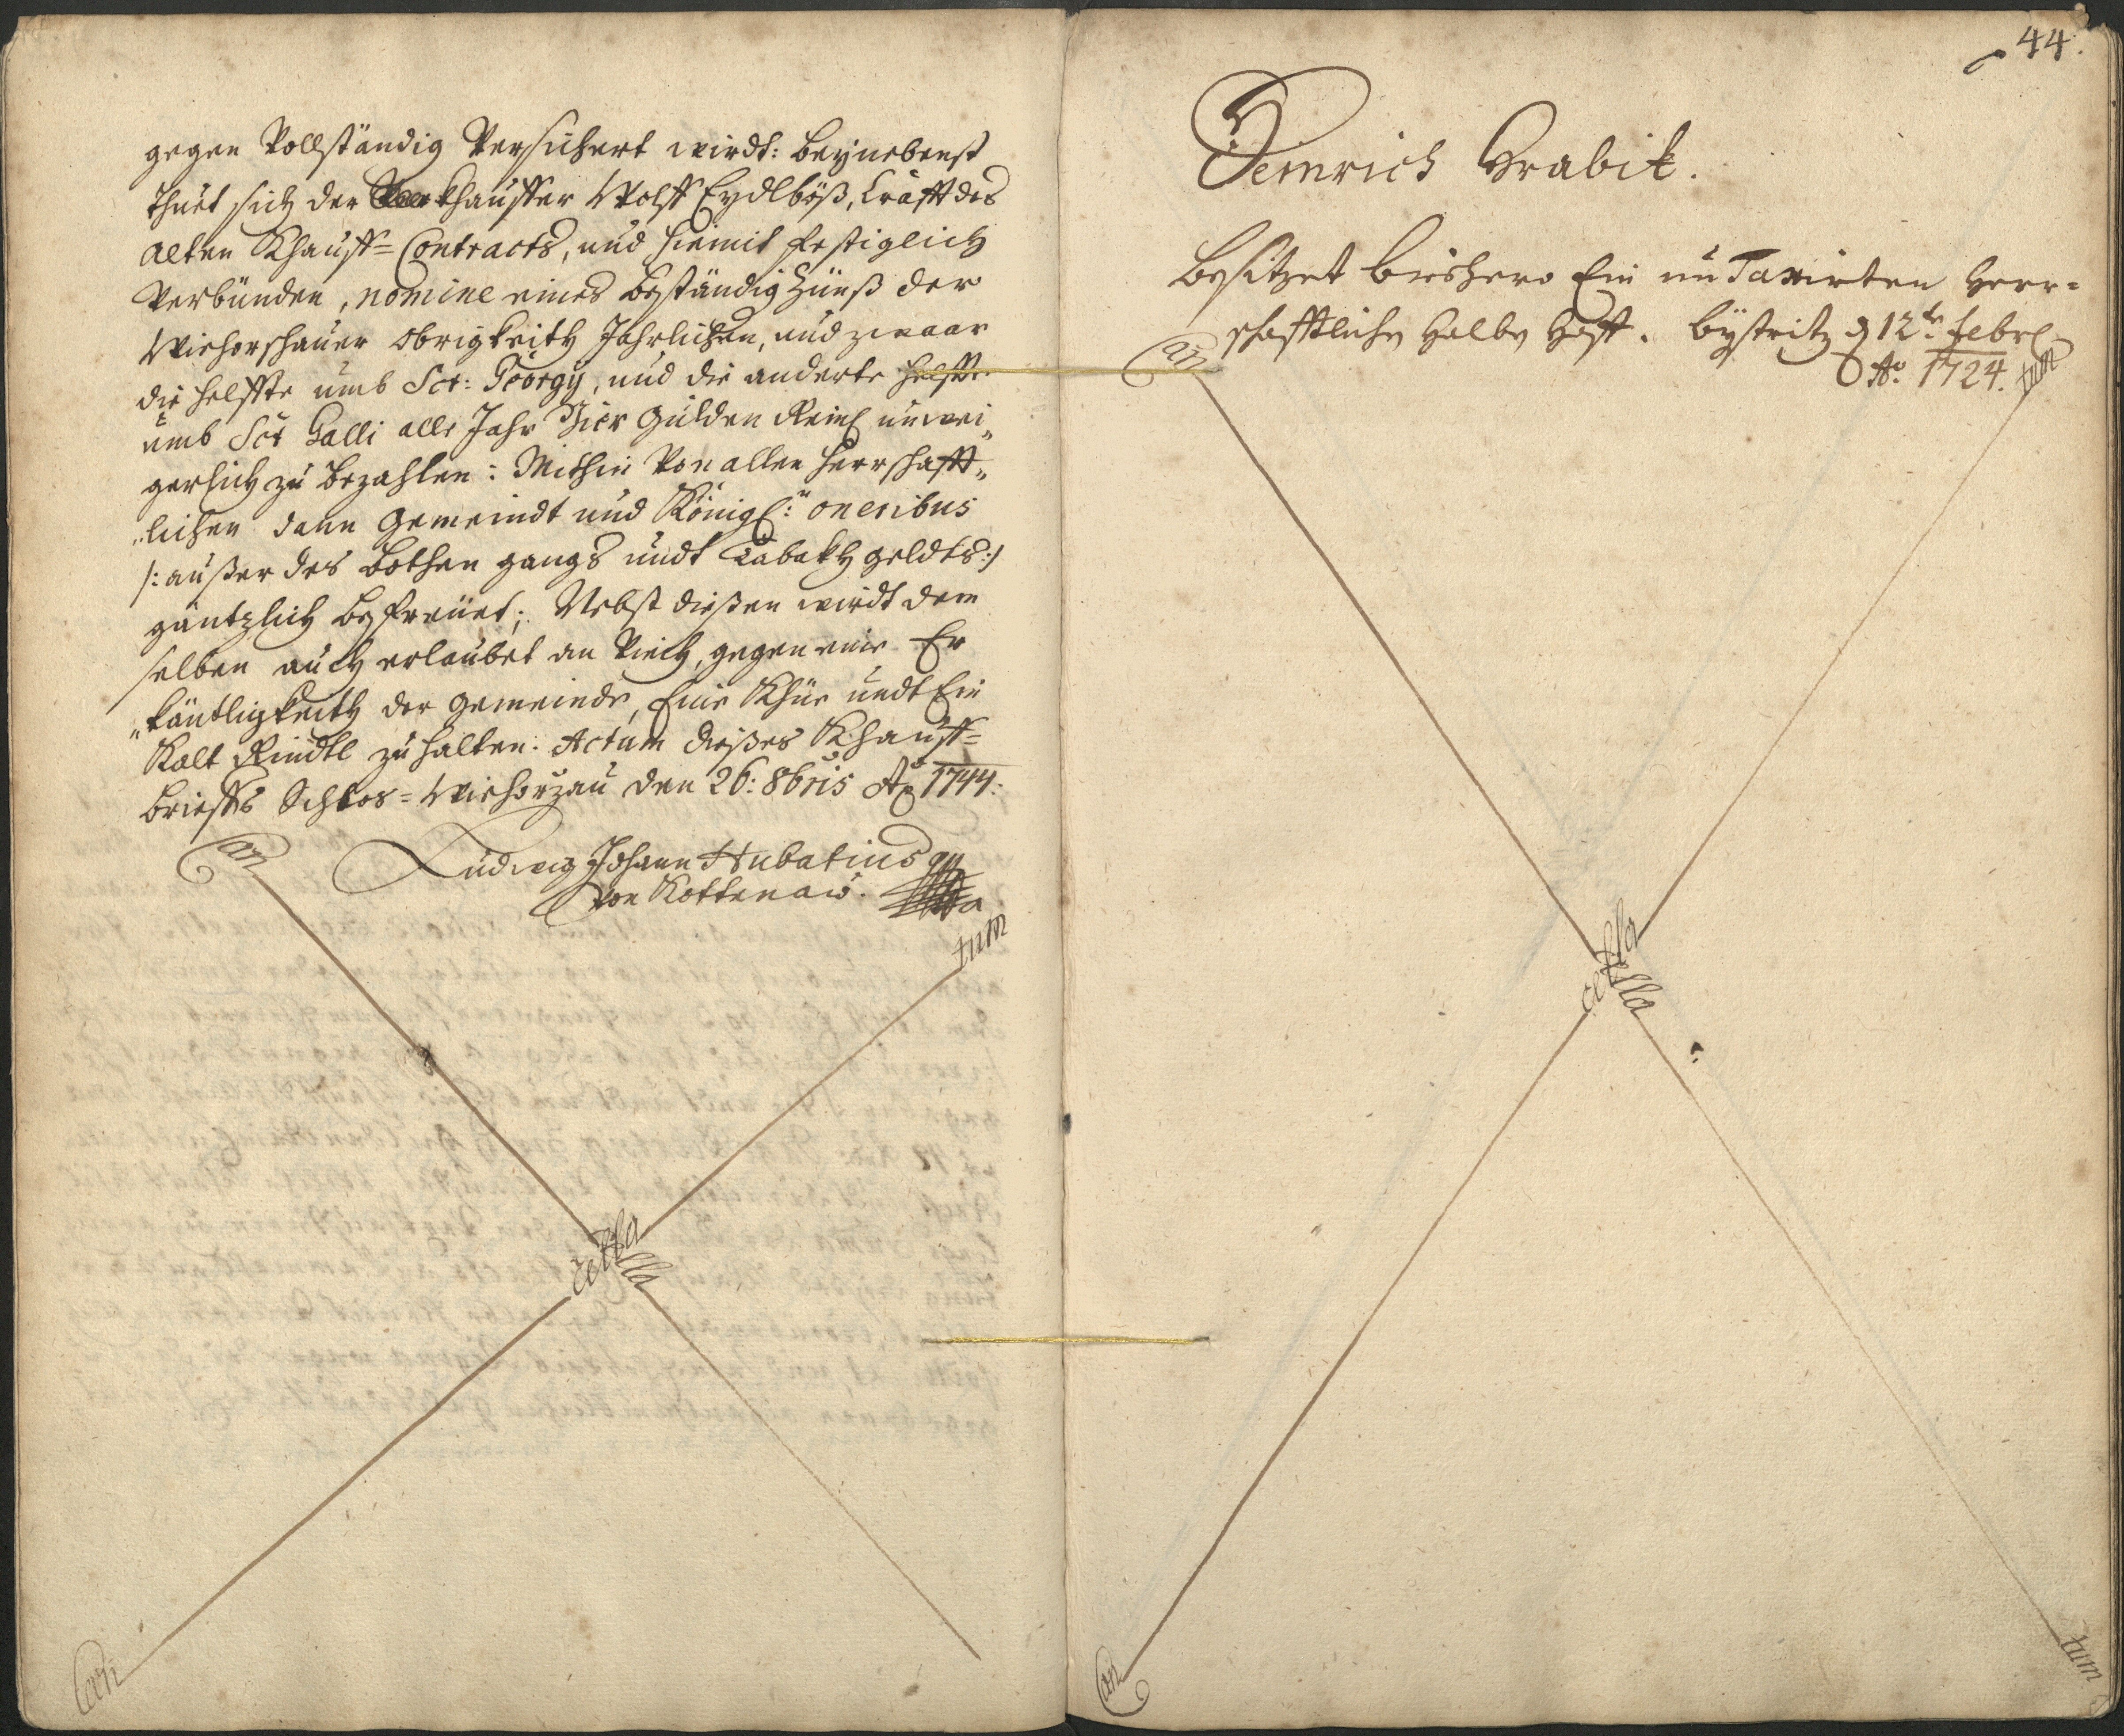 gegen Vollständig Versichert wirdt: beynebenst
thuet sich der khauffer Wolff Eydlböß, Crafft des
alten Khauff=Contracts, und hiemit festiglich
Verbünden, nomine eines beständig Zünß der
Wiehorschauer Obrigkeith Jahrlichen, und zwaar
die helffte umb Sct: Georgy, und die anderte helffte
umb Sct Galli alle Jahr Vier gulden Reinl unwei„
gerlich zu bezahlen: Mithin Von allen herrschafft„
„lichen dann gemeindt und Königl: oneribus
/: außer des Bothen gangs undt Tabakh geldts:/
gäntzlich befreüet; Nebst dießen wirdt dem
selben auch erlaubet an Viech, gegen eine Er
„käntligkeith der gemeinde, Eine Khue undt Ein
Kalt Rindtl zu halten. Actum dießes Khauff=
brieffs Schlos=Wiehorzau den 26: 8bris Ao 1744:
Ludwig Johann Hubatius
von Kottenau.
Can
tum
cella
cella
Can
44.
Heinrich Hrabik.
Besitzet bishero Ein un Taxirten Herr=
schafftliche Halbe Hoft. Bystritz d 12te febrl
Ao. 1724.
Can
tum
cella
cella
Can
tum